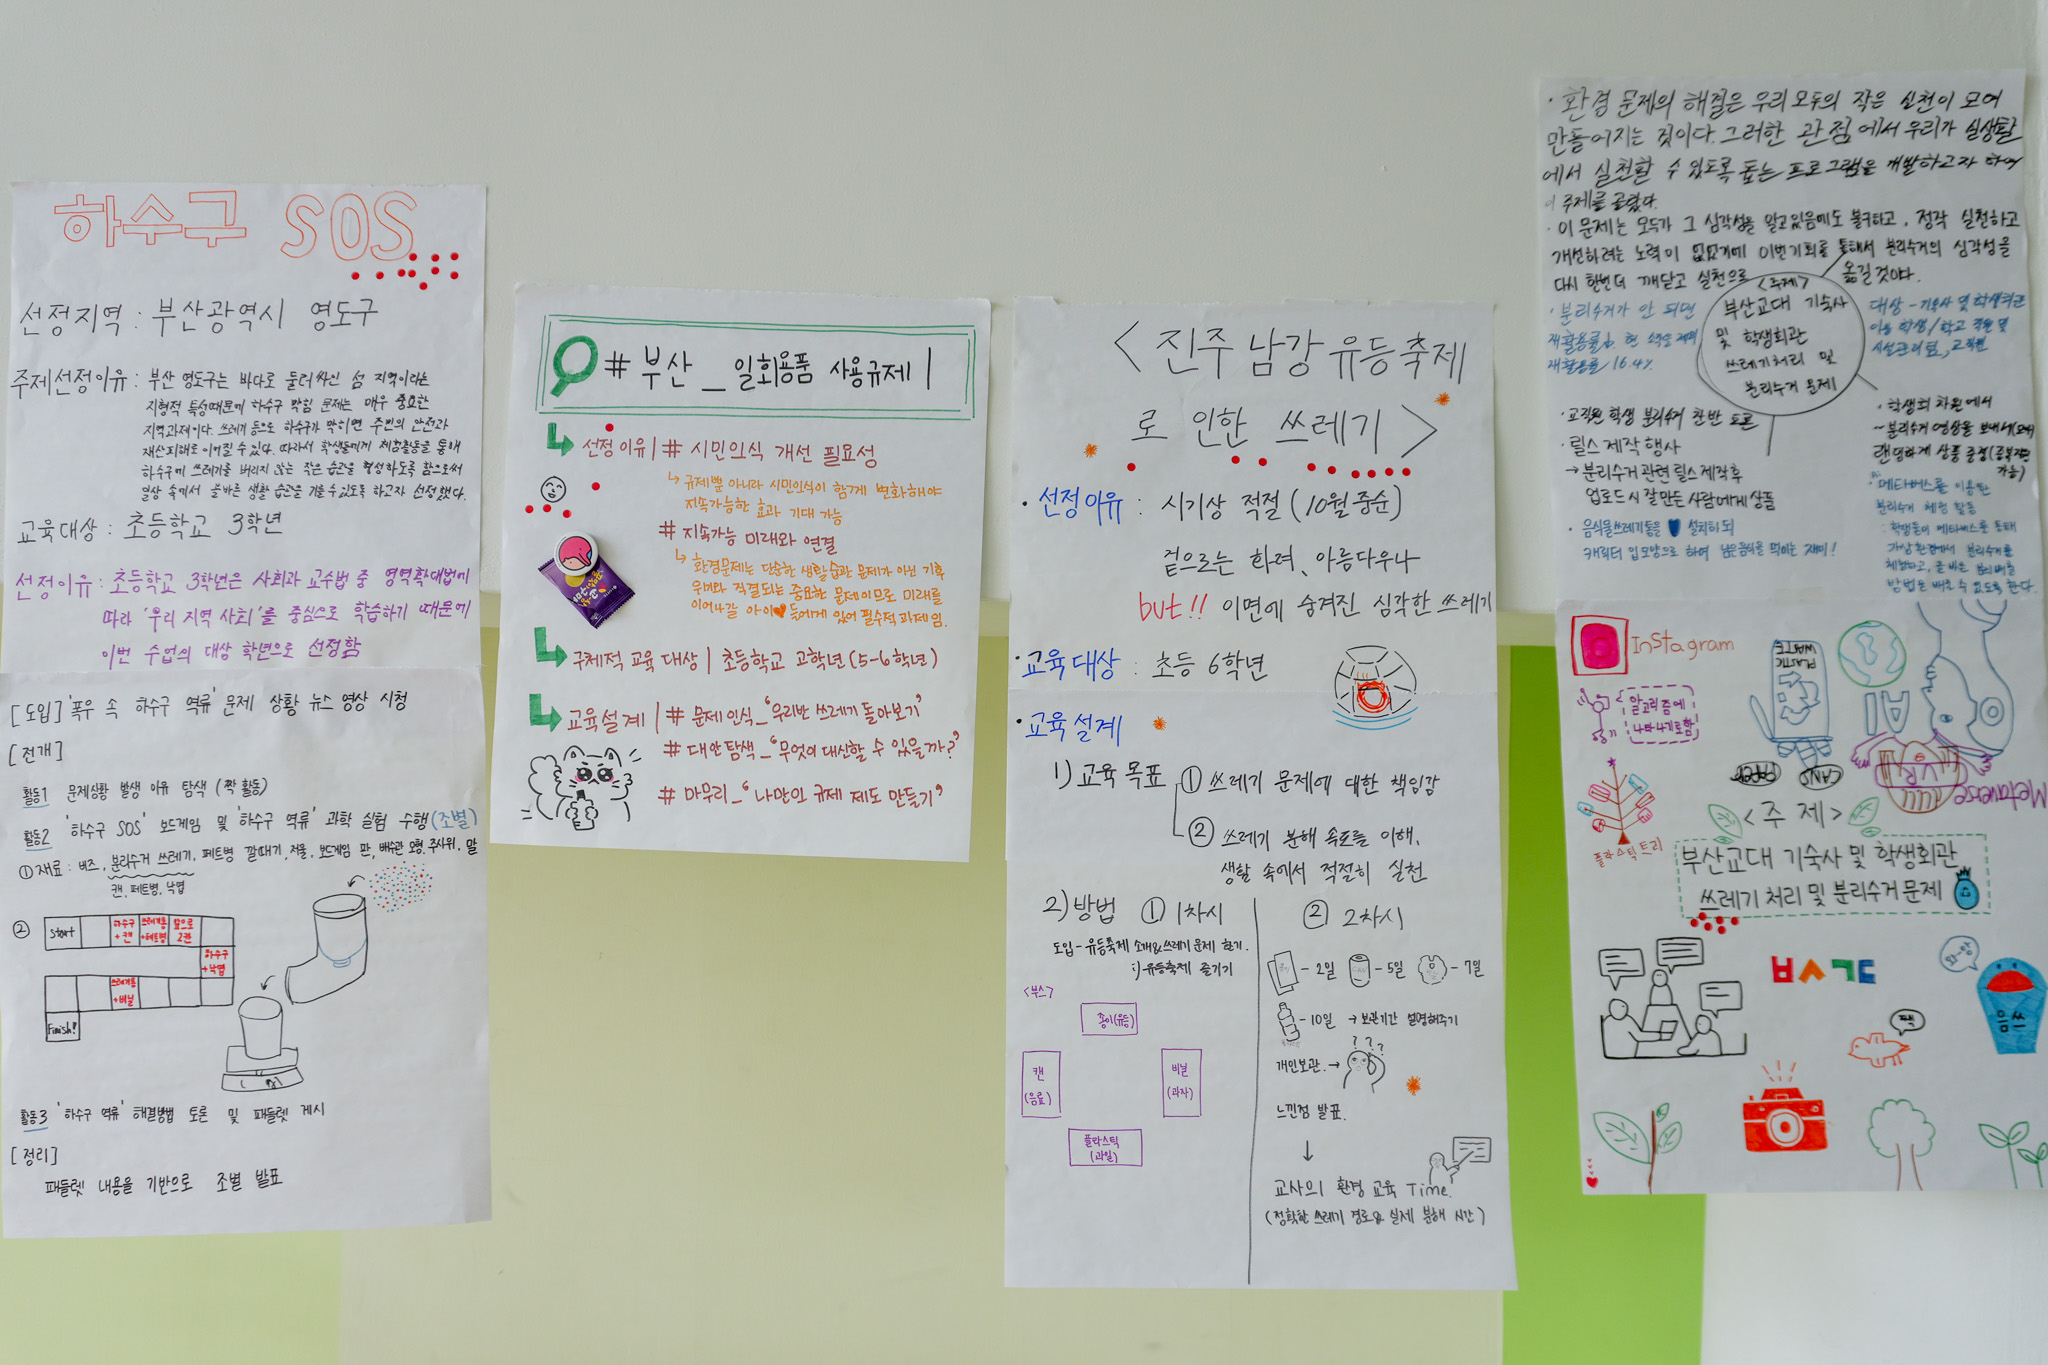 하수구 SOS
선정지역 : 부산광역시 영도구
주제선정이유 : 부산 영도구는 바다로 둘러싸인 섬 지역이라는
지형적 특성때문에 하수구 막힘 문제는 매우 중요한
지역과제이다. 쓰레기 등으로 하수구가 막히면 주민의 안전과
재산피해로 이어질 수 있다. 따라서 학생들에게 체험활동을 통해
하수구에 쓰레기를 버리지 않는 작은 습관을 형성하도록 함으로써
일상 속에서 올바른 생활 습관을 기를 수 있도록 하고자 선정했다.
교육대상 : 초등학교 3학년
선정이유 : 초등학교 3학년은 사회과 교수법 중 영역확대법에
따라 '우리 지역 사회'를 중심으로 학습하기 때문에
이번 수업의 대상 학년으로 선정함
[도입] '폭우 속 하수구 역류' 문제 상황 뉴스 영상 시청
[전개]
활동1 문제상황 발생 이유 탐색 (짝 활동)
활동2 '하수구 SOS' 보드게임 및 '하수구 역류' 과학 실험 수행(조별)
① 재료 : 비즈, 분리수거 쓰레기, 페트병 깔때기, 저울, 보드게임 판, 배수관 모형, 주사위, 말
캔, 페트병, 낙엽
②
Start
하수구 +캔
쓰레기통 +페트병
앞으로 2칸
하수구 +낙엽
쓰레기통 +비닐
Finish!
활동3 '하수구 역류' 해결방법 토론 및 패들렛 게시
[정리]
패들렛 내용을 기반으로 조별 발표
# 부산 _ 일회용품 사용규제 |
선정이유 | # 시민의식 개선 필요성
규제뿐 아니라 시민의식이 함께 변화해야
지속가능한 효과 기대 가능
# 지속가능 미래와 연결
환경문제는 단순한 생활습관 문제가 아닌 기후
위기와 직결되는 중요한 문제이므로 미래를
이어나갈 아이♥들에게 있어 필수적 과제임.
구체적 교육 대상 | 초등학교 고학년 (5-6학년)
교육설계 | # 문제인식_'우리반 쓰레기 돌아보기'
# 대안탐색_'무엇이 대신할 수 있을까?'
# 마무리_'나만의 규제 제도 만들기'
<진주 남강 유등축제
로 인한 쓰레기>
· 선정이유 : 시기상 적절 (10월 중순)
겉으로는 화려, 아름다우나
but!! 이면에 숨겨진 심각한 쓰레기
· 교육대상 : 초등 6학년
· 교육설계
1) 교육 목표
① 쓰레기 문제에 대한 책임감
② 쓰레기 분해 속도를 이해,
생활 속에서 적절히 실천
2) 방법 ① 1차시
도입 - 유등축제 소개&쓰레기 문제 환기.
유등축제 즐기기
<부스>
종이(유등)
캔 (음료)
비닐 (과자)
플라스틱 (과일)
② 2차시
- 2일
- 5일
- 7일
- 10일 → 보관기간 설명해주기
개인보관. →
???
느낀점 발표.
교사의 환경 교육 Time.
(정확한 쓰레기 경로& 실제 분해 시간)
· 환경 문제의 해결은 우리 모두의 작은 실천이 모여
만들어지는 것이다. 그러한 관점에서 우리가 실생활
에서 실천할 수 있도록 돕는 프로그램을 개발하고자 하여
이 주제를 골랐다.
· 이 문제는 모두가 그 심각성을 알고있음에도 불구하고, 정작 실천하고
개선하려는 노력이 없었기에 이번기회를 통해서 분리수거의 심각성을
다시 한번 더 깨닫고 실천으로 옮길것이다.
<주제>
부산교대 기숙사
및 학생회관
쓰레기처리 및
분리수거 문제
· 분리수거가 안 되면
재활용률 16.4%
대상 - 기숙사 및 학생회관
이용 학생/학교 직원 및
· 교직원 학생 분리수거 찬반 토론
· 릴스 제작 행사
→ 분리수거 관련 릴스 제작 후
업로드시 잘 만든 사람에게 상품
· 음식물쓰레기통을 설치하되
캐릭터 입모양으로 하여 남은음식을 먹이는 재미!
· 학생회 차원에서
랜덤하게 상품 증정
· 메타버스를 이용한
분리수거 체험 활동
: 학생들이 메타버스를 통해
가상환경에서 분리수거를
체험하고, 올바른 분리배출
방법을 배울 수 있도록 한다.
Instagram
알고리즘에
나타나기로함
PLASTIC WASTE
AI
PAPER
CANS
VR
Metaverse
플라스틱 트리
<주제>
부산교대 기숙사 및 학생회관
쓰레기 처리 및 분리수거 문제
ㅂㅅㄱㄷ
와~앙
음쓰
짹